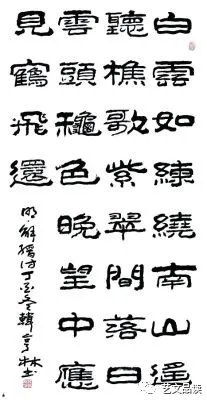 白雲如練繞南山遥
聽樵歌紫翠間落日
雲頭穐色晚望中應
見鶴飛還
明解縉诗丁亥冬韓亨林书